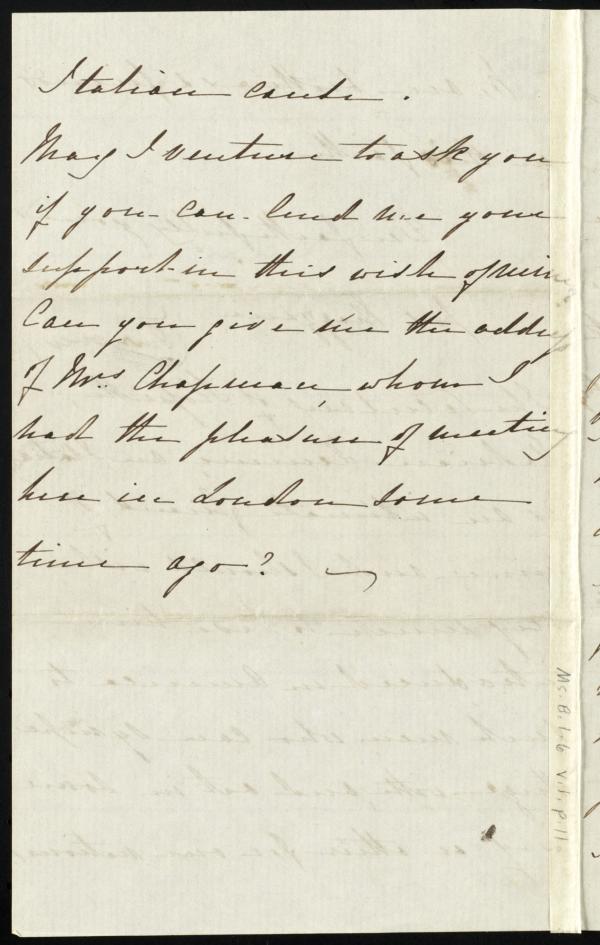 Italian cause.
May I venture to ask you
if you can lend me your
support in this wish of mine
Can you give me the addres
of Mrs Chapman, whom I
had the pleasure of meeting
here in London some
time ago?
Ms. B. 1.6 v.1, p.11